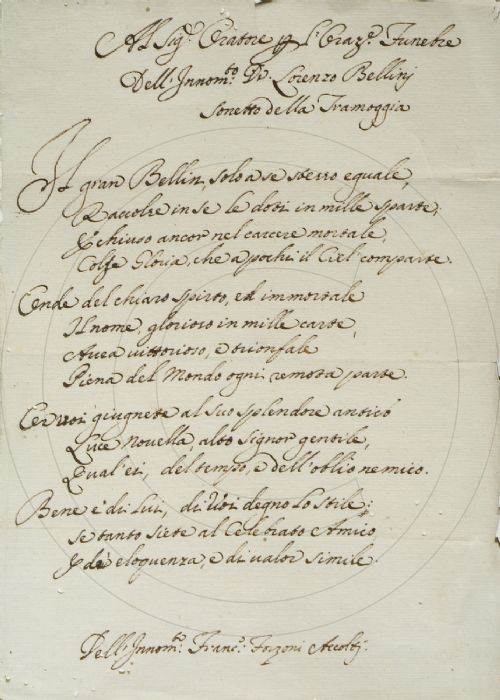 Al Sig.r Oratore p l'Oraz.e Funebre
Dell'Innom.to Dr. Lorenzo Bellinj
Sonetto della Tramoggia
Il gran Bellin, solo a se stesso eguale,
Raccolse in se le doti in mille sparte,
E chiuso ancor nel carcere mortale,
Colse Gloria, che a pochi il Ciel comparte.
Onde del chiaro spirto, ed immortale
Il nome, glorioso in mille carte,
Avea vittorioso, e trionfale
Piena del Mondo ogni remota parte.
Or voi giugnete al suo splendore antico
Luce novella, alto Signor gentile,
Qual'ei, del tempo, e dell'oblio nemico.
Bene è di Lui, di Voi degno lo stile;
Se tanto siete al Celebrato e Amico,
E di eloquenza, e di valor simile.
Dell'Innom.to Franc.o Forzoni Accoltj.